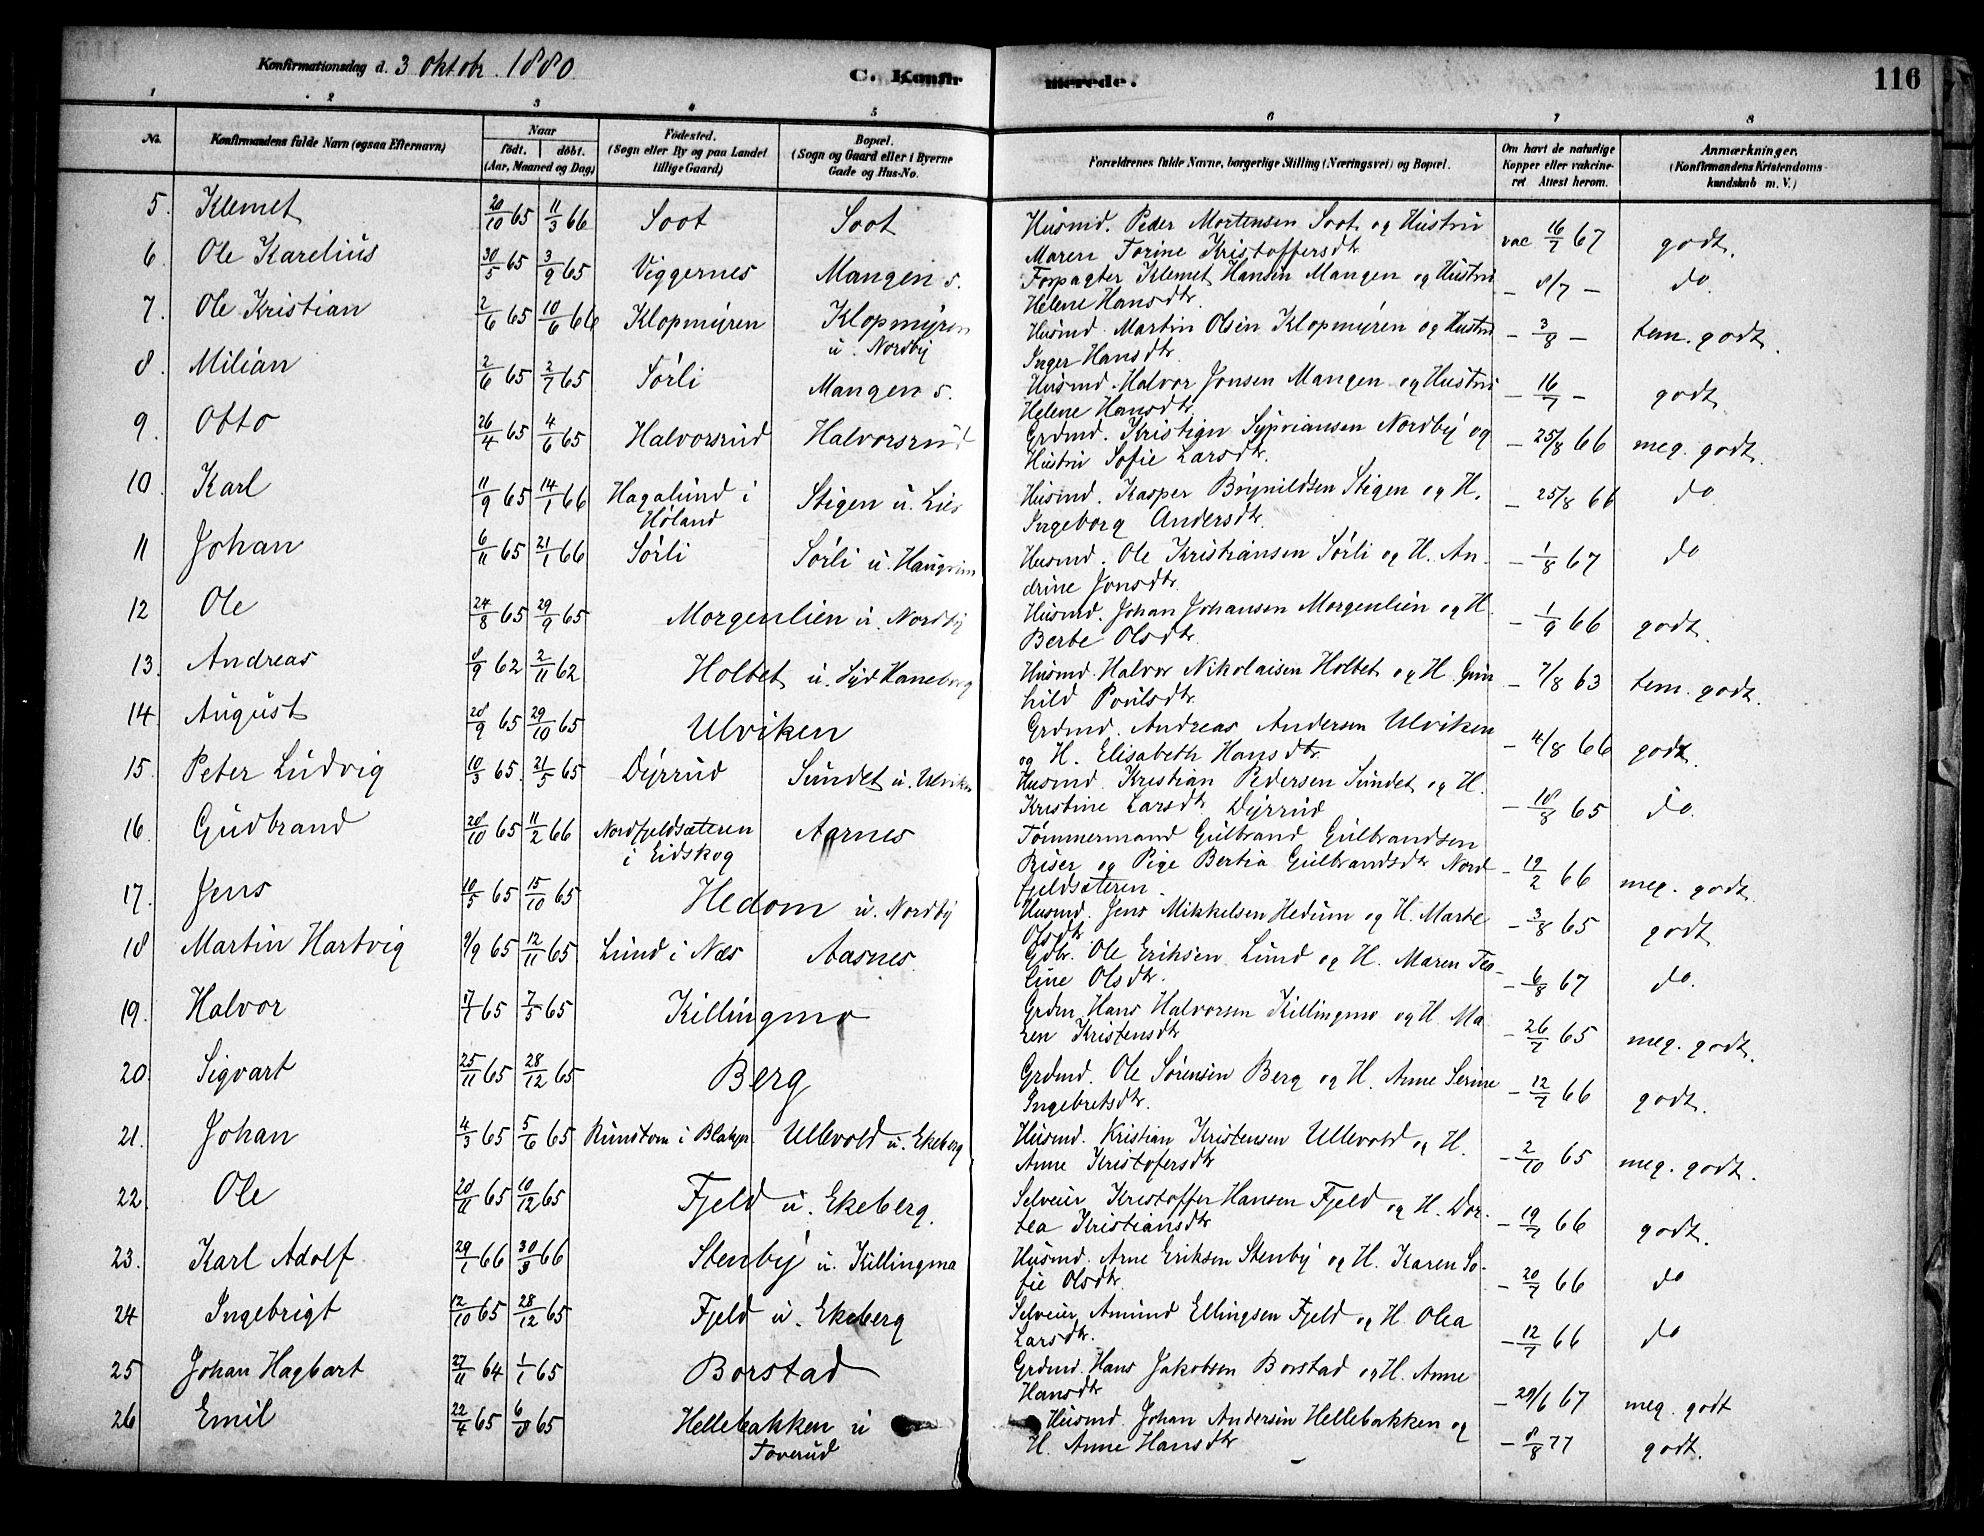 Konfirmationsdag d. 3 Oktobr. 1880
C. Konfirmerede.
116
1 2 3 4 5 6 7 8
No.
Konfirmandens fulde Navn (ogsaa Efternavn)
Naar
födt. döbt.
(Aar, Maaned og Dag)
Födested.
(Sogn eller By og paa Landet
tillige Gaard)
Bopæl.
(Sogn og Gaard eller i Byerne
Gade og Hus-No.
Forældrenes fulde Navne, borgerlige Stilling (Næringsvei) og Bopæl.
Om havt de naturlige
Kopper eller vakcine-
ret Attest herom.
Anmærkninger.
(Konfirmandens Kristendoms-
kundskab m. V.)
5. Klemet 20/10 65 11/3 66 Soot Soot Husmd. Peder Mortensen Soot og Hustru
Maren Torine Kristoffersdtr vac 16/7 67 godt.
6. Ole Karelius 30/5 65 3/9 65 Viggernes Mangen s. Forpagter Klemet Hansen Mangen og Hustru
Helene Hansdtr. - 8/7 - do.
7. Ole Kristian 2/6 65 10/6 66 Klopmyren Klopmyren
u. Nordby Husmd. Martin Olsen Klopmyren og Hustru
Inger Hansdtr. - 3/8 - tem. godt.
8. Milian 2/6 65 2/7 65 Sörli Mangen s. Husmd. Halvor Jonsen Mangen og Hustru
Helene Hansdtr. - 16/7 - godt.
9. Otto 26/4 65 4/6 65 Halvorsrud Halvorsrud Grdmd. Kristian Sypriansen Nordby og
Hustru Sofie Larsdtr. - 25/8 66 meg. godt.
10. Karl 11/9 65 14/1 66 Hagalund i
Höland Stigen u. Lier Husmd. Kasper Brynildsen Stigen og H.
Ingeborg Andersdtr. - 25/8 66 do
11 Johan 6/11 65 21/1 66 Sörli Sörli u. Haugrim Husmd. Ole Kristiansen Sörli og H. An-
drine Jonsdtr. - 1/8 67 do
12 Ole 24/8 65 29/9 65 Morgenlien u. Nordby Husmd. Johan Johansen Morgenlien og H.
Berte Olsdtr. - 1/9 66 godt.
13. Andreas 8/9 62 2/11 62 Holtet u. Syd Haneborg Husmd. Halvor Nikolaisen Holtet og H. Gun
hild Poulsdtr. - 7/8 63 tem. godt.
14 August 28/9 65 29/10 65 Ulviken Grdmd. Andreas Andersen Ulviken
og H. Elisabeth Hansdtr. - 4/8 66 godt.
15. Peter Ludvig 10/3 65. 21/5 65 Dyrrud Sundet u. Ulviken Husmd. Kristian Pedersen Sundet og H.
Kristine Larsdtr. Dyrrud - 18/8 65 do.
16. Gudbrand 28/10 65 11/2 66 Nordfjeldsæteren
i Eidskog Aarnes Tömmermand Gulbrand Gulbrandsen
Riser og Pige Bertia Gulbrandsdtr. Nord
fjeldsæteren. - 19/2 66 meg. godt.
17. Jens 10/5 65 15/10 65 Hedom u. Nordby Husmd. Jens Mikkelsen Hedum og H. Marte
Olsdtr. - 3/8 65 godt
18 Martin Hartvig 9/9 65 12/11 65 Lund i Næs Aasnes. Gdbr. Ole Eriksen Lund og H. Maren Teo-
line Olsdtr. - 6/8 67 do.
19. Halvor 1/1 65 7/5 65 Killingmo Grdm. Hans Halvorsen Killingmo og H Ma
ren Kristensdtr. - 26/7 65 meg. godt.
20. Sigvart 25/11 65 28/12 65 Berg Grdmd. Ole Sörensen Berg og H. Anne Serine
Ingebretsdtr. - 12/7 66 godt.
21. Johan 4/3 65 5/6 65 Runstom i Blakjr. Ullevold u. Ekeberg Husmd. Kristian Kristensen Ullevold og H.
Anne Kristofersdtr - 2/10 65 meg. godt.
22. Ole 20/11 65 10/12 65 Fjeld u. Ekeberg. Selveier Kristoffer Hansen Fjeld og H. Dor-
tea Kristiansdtr - 19/7 66 godt.
23. Karl Adolf 29/1 66 30/3 66 Stenby u. Killingmo Husmd. Arne Eriksen Stenby og H. Karen So-
fie Olsdtr. - 20/7 66 do
24 Ingebrigt 12/10 65 28/12 65 Fjeld u. Ekeberg Selveier Amund Ellingsen Fjeld og H. Olea
Larsdtr. - 12/7 66 do
25 Johan Hagbart 27/11 64 1/1 65 Borstad Grdmd. Hans Jakobsen Borstad og H. Anne
Hansdtr - 29/6 67 meg. godt
26 Emil 22/4 65 6/8 65 Hellebakken u
Toverud Husmd. Johan Andersen Hellebakken og
H. Anne Hansdtr. - 8/8 77 godt.